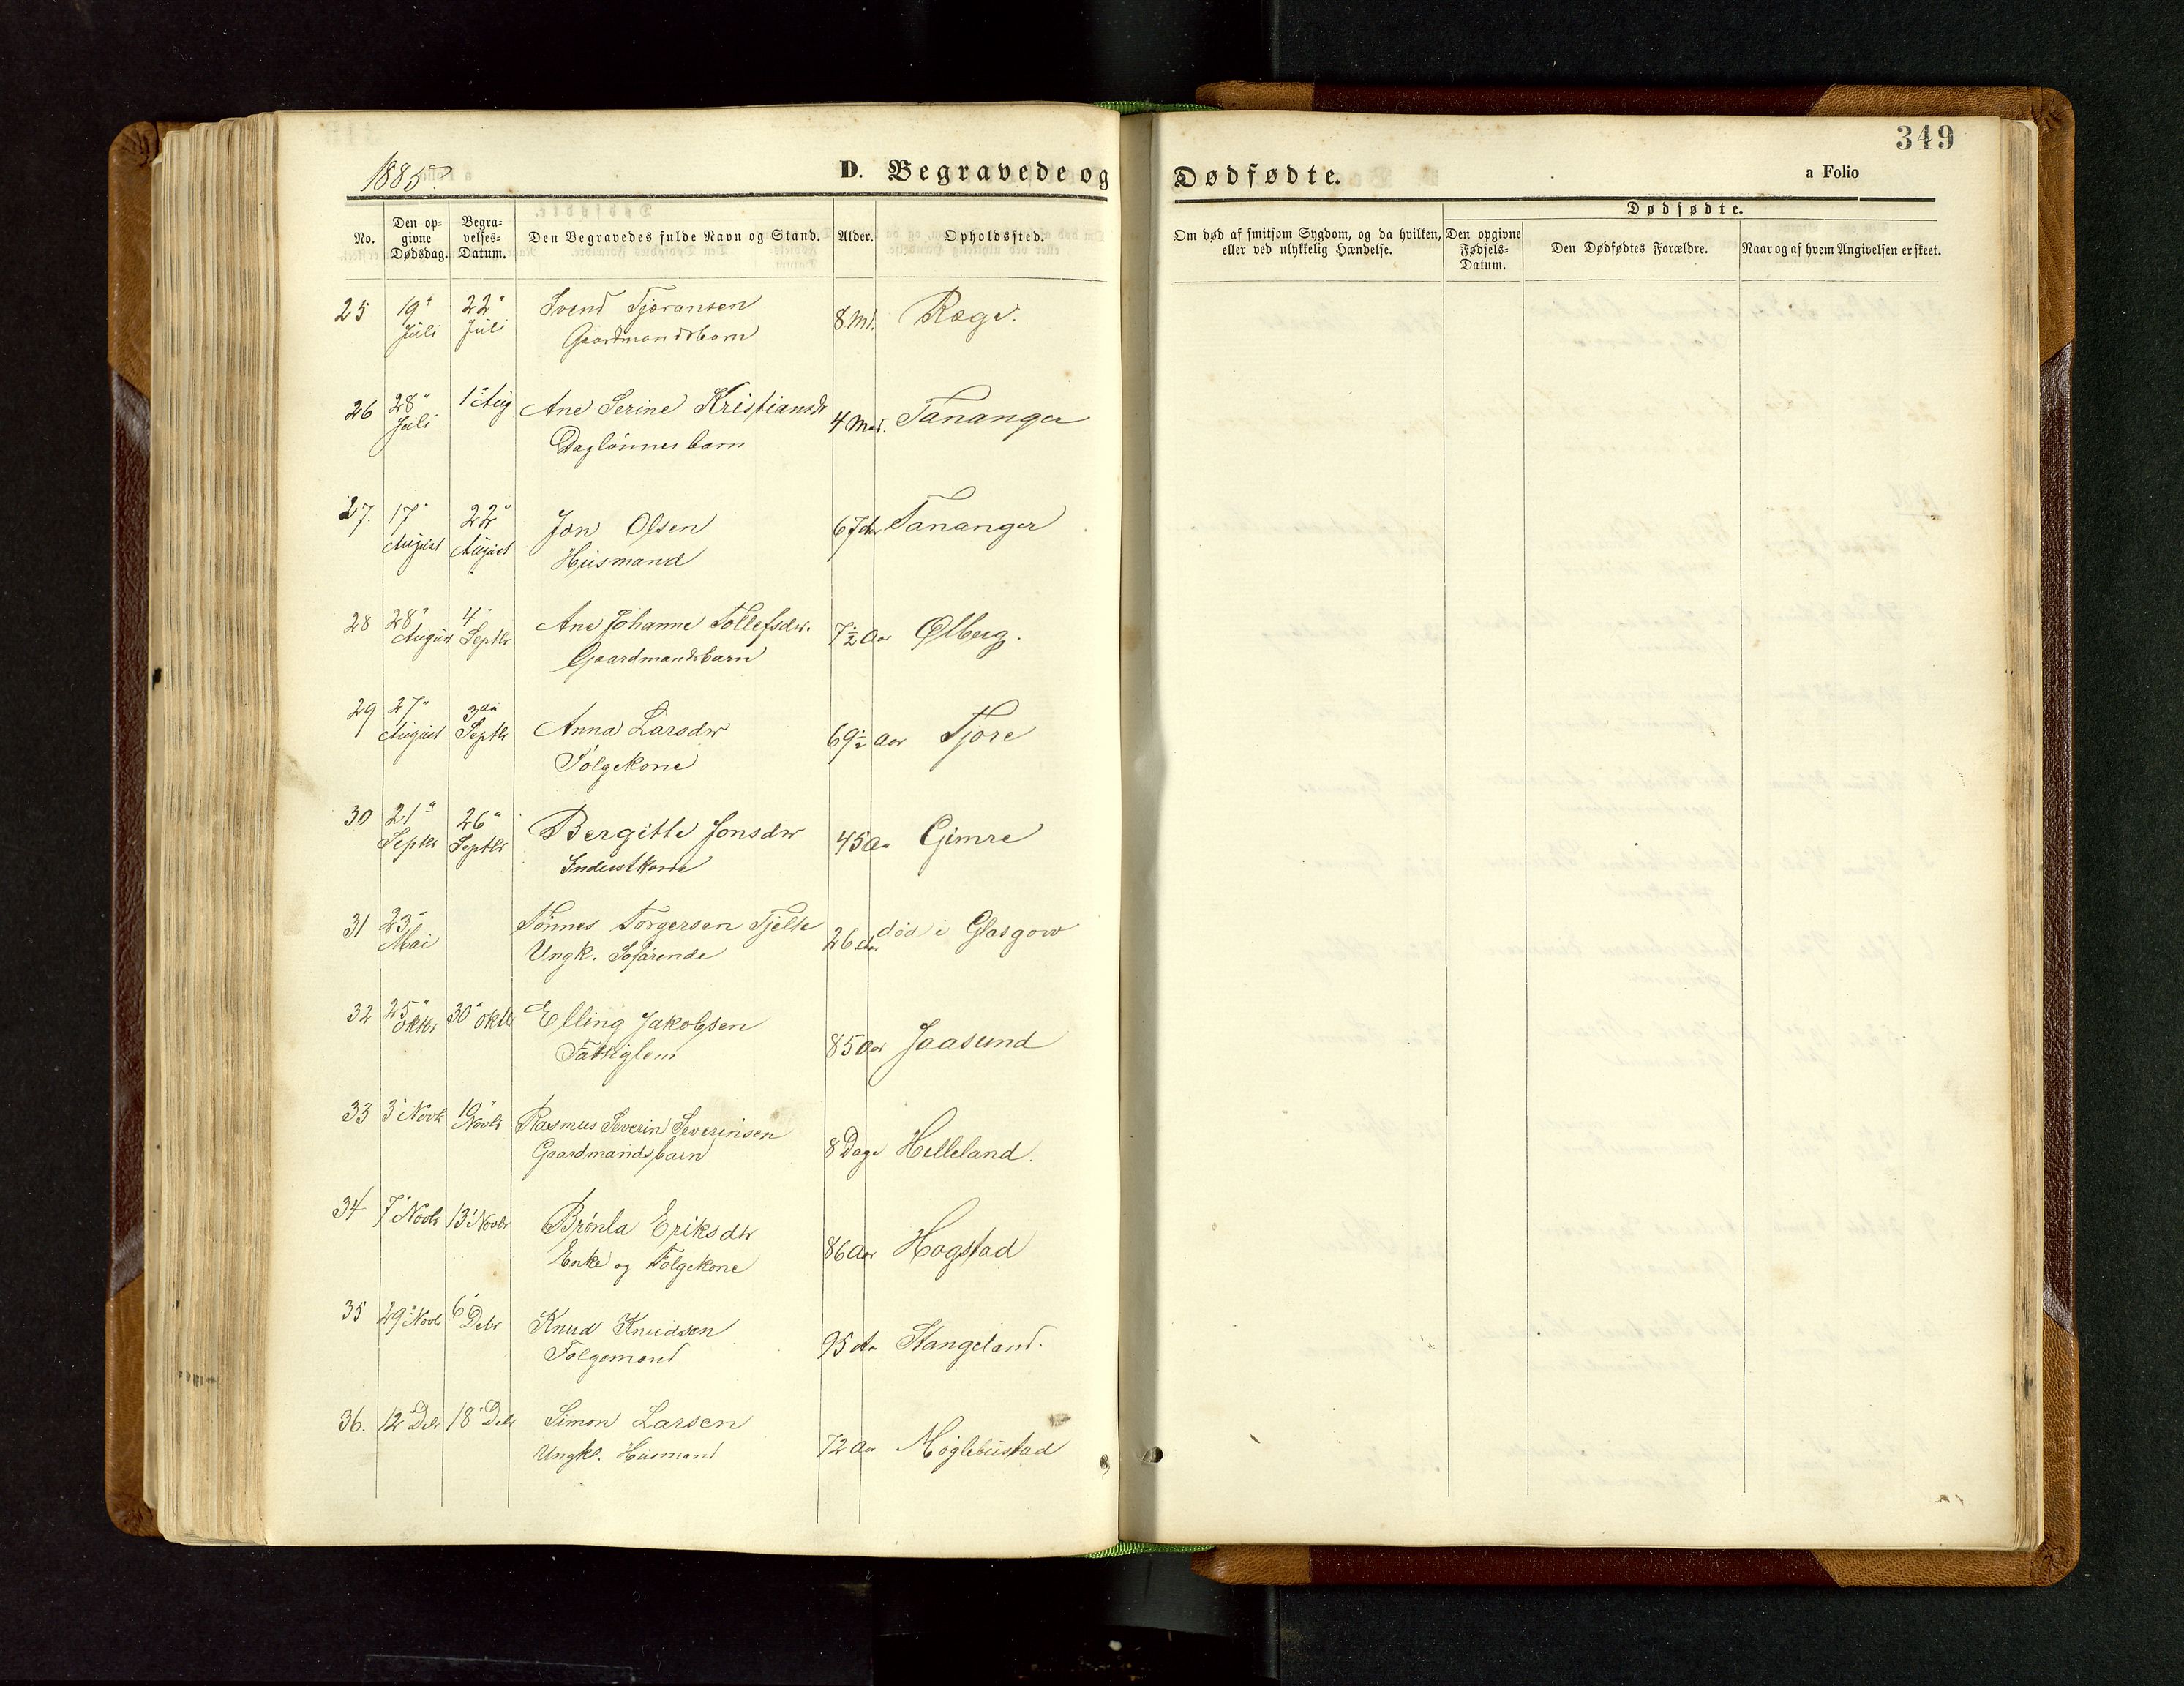 349
1885.
D. Begravede og Dødfødte.
a Folio
No. Den opgivne Dødsdag. Begravelses-Datum. Den Begravedes fulde Navn og Stand. Alder. Opholdssted. Om død af smitsom Sygdom, og da hvilken, eller ved ulykkelig Hændelse. Dødfødte. Den opgivne Fødsels-Datum. Den Dødfødtes Forældre. Naar og af hvem Angivelsen er skeet.
25 19" Juli 22" Juli Svend Tjøransen 8 Md. Ræge.
Gaardmandsbarn
26 28" Juli 1" Aug Ane Serine Kristiansdr 4 Md. Tananger
Daglönnerbarn
27. 17" August 22" August Jon Olsen 67 Aar Tananger
Husmand
28 28" August 4" Septbr Ane Johanne Tollefsdr. 7½ Aar Ølberg.
Gaardmandsbarn
29 27" August 3die Septbr Anna Larsdr 69½ Aar Tjøre
Følgekone
30 21" Septbr 26" Septbr Bergitte Jonsdr 45 Aar Gimre
Inderstkone
31 23" Mai Tönnes Torgersen Tjelte 26 Aar död i Glasgow
Ungk. Söfarende
32 25" Oktbr 30" Oktbr Elling Jakobsen 85 Aar Jaasund
Fattiglem
33 3" Novbr 10" Novbr Rasmus Severin Severinsen 8 Dage Helleland.
Gaardmandsbarn
34 7" Novbr 13" Novbr Brönla Eriksdr 86 Aar Hogstad
Enke og Følgekone
35 29" Novbr 6" Debr Knud Knudsen 95 Aar Stangeland.
Følgemand
36. 12" Debr 18" Debr Simon Larsen 72 Aar Möglebustad
Ungkl. Husmand